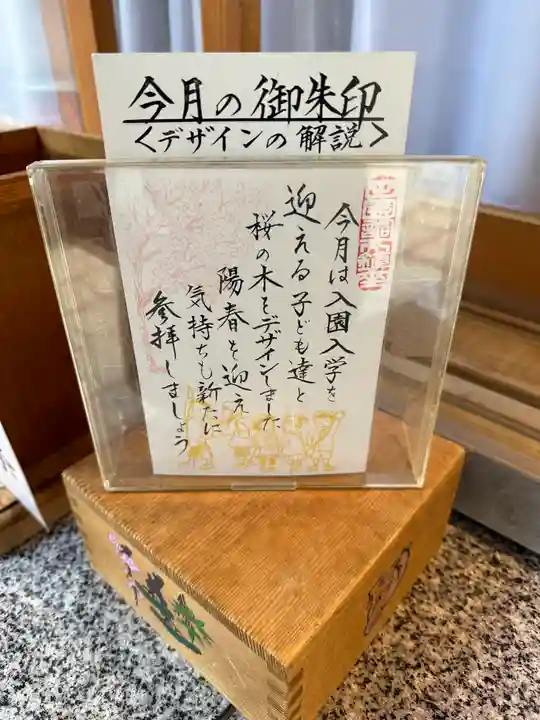 今月の御朱印
＜デザインの解説＞
今月は入園入学を
迎える子ども達と
桜の木をデザインしました
陽春を迎え
気持ちも新たに
参拝しましょう